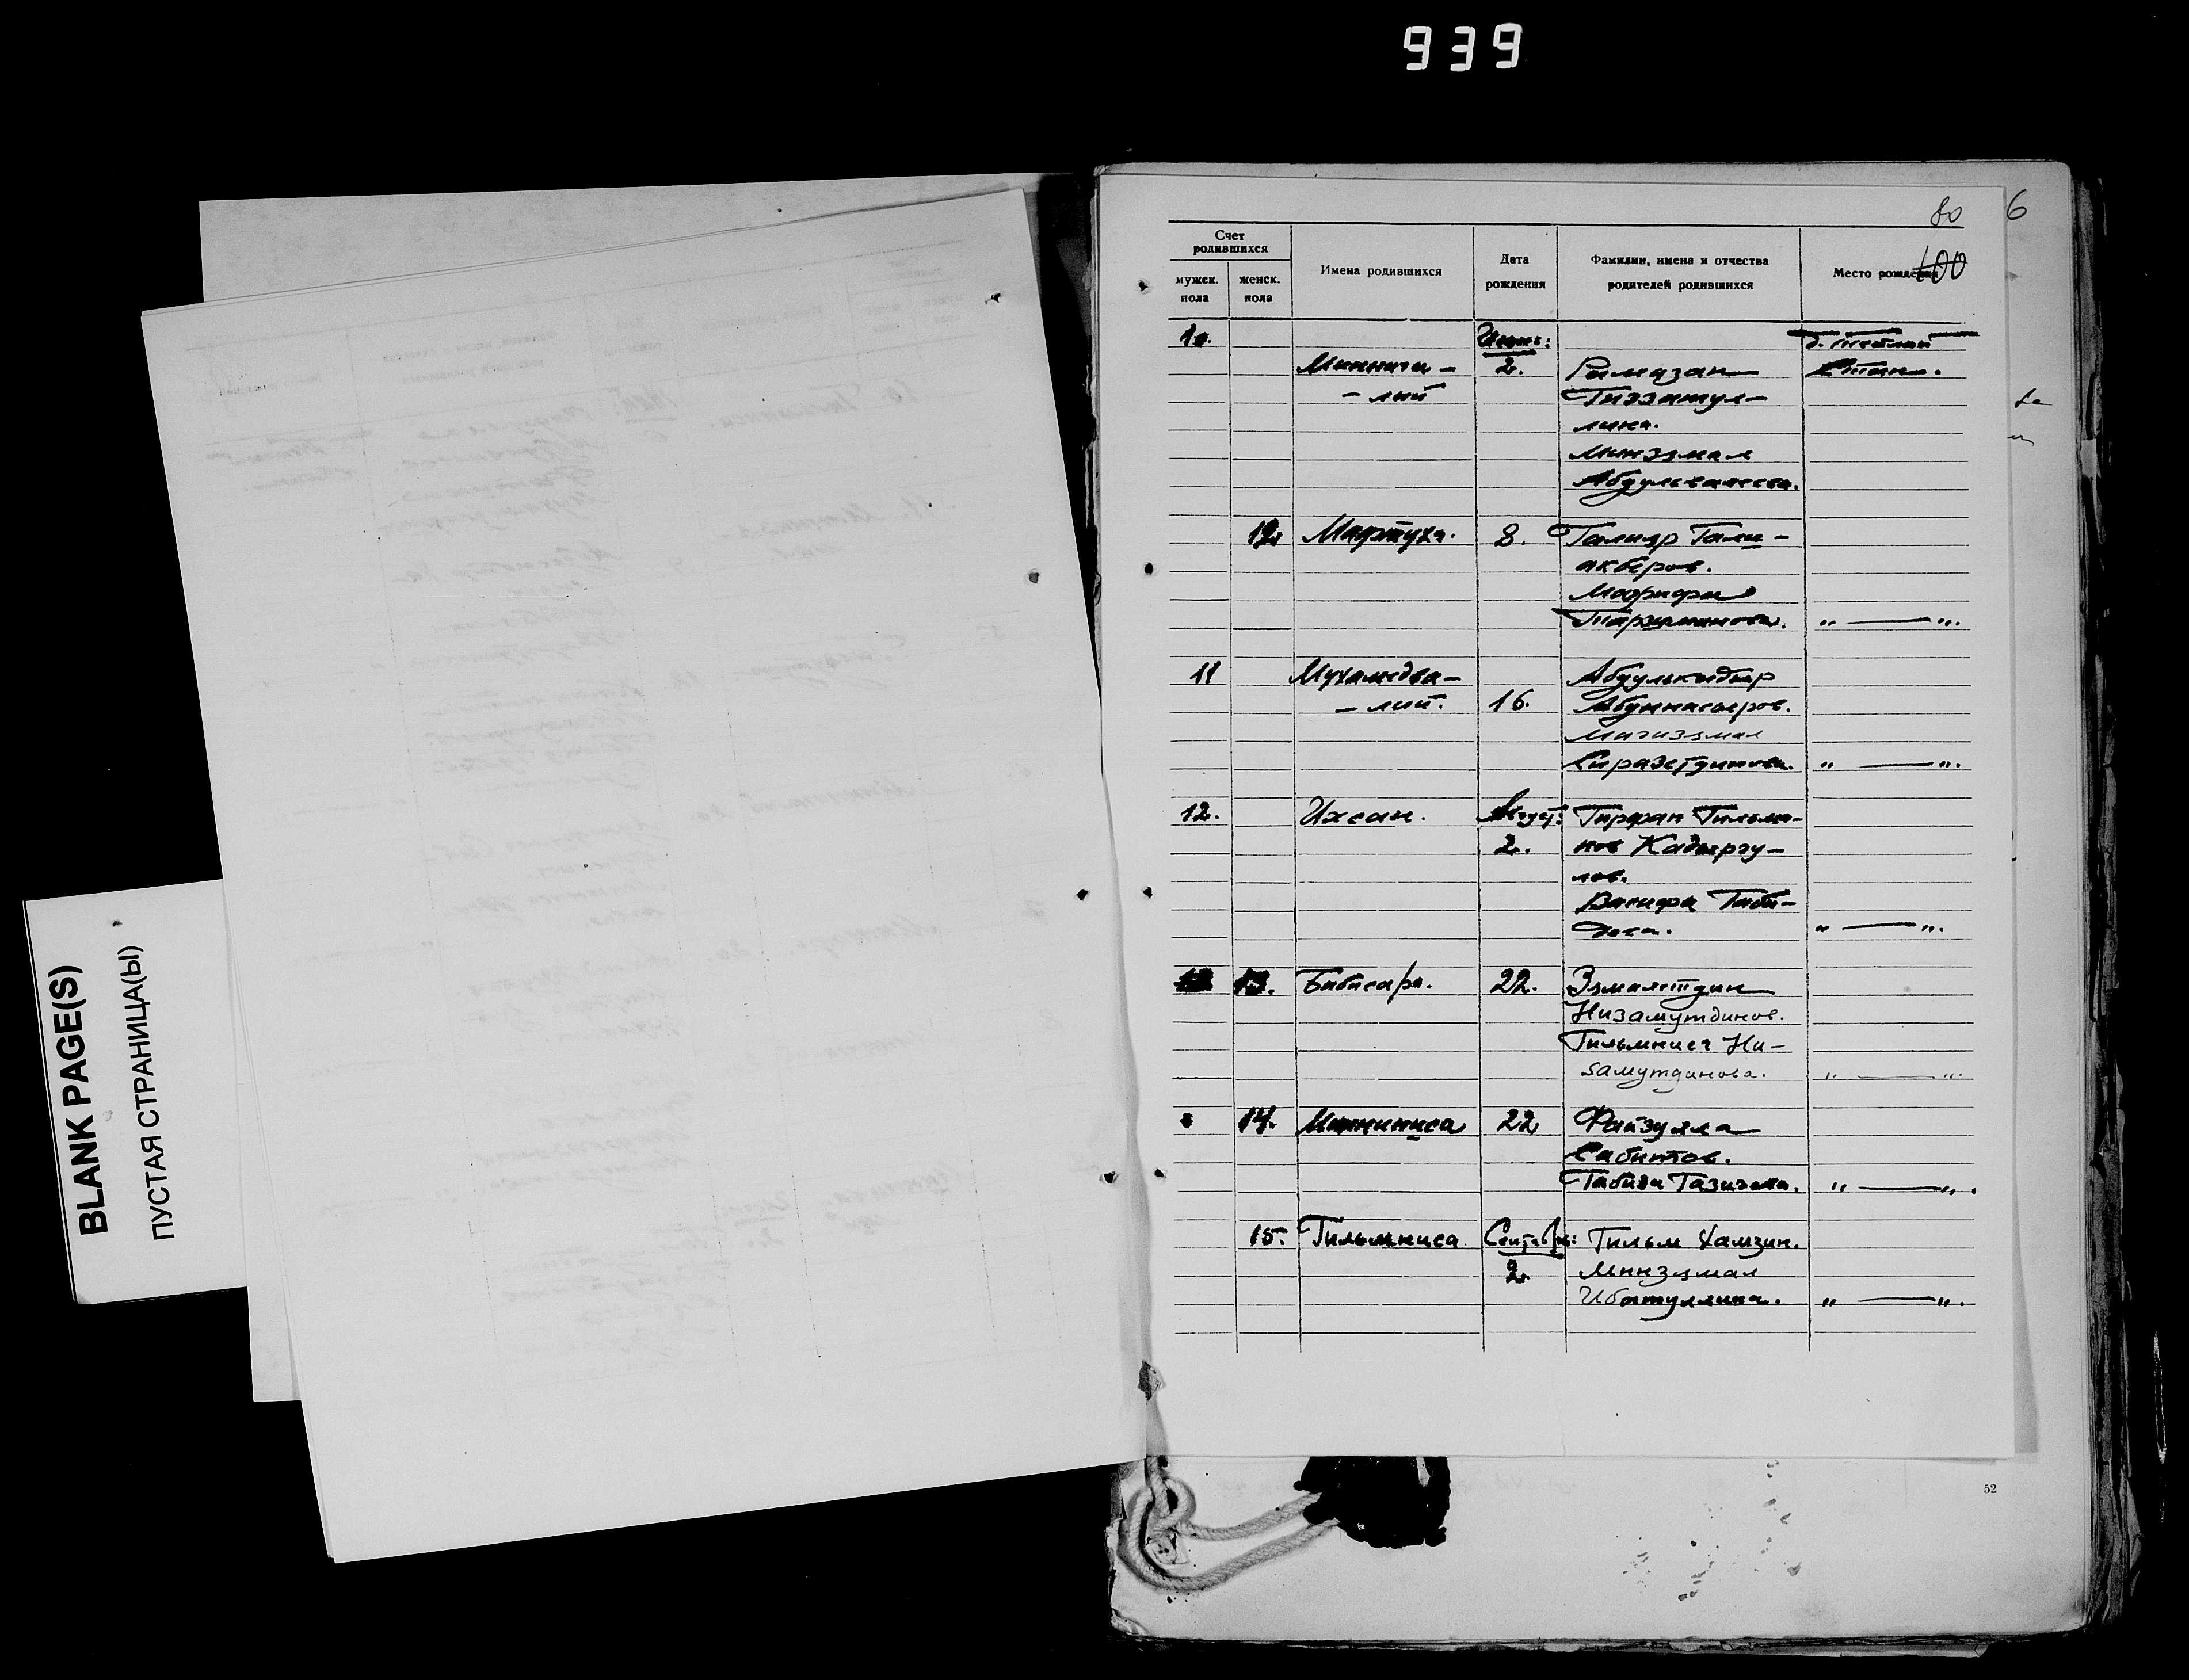 939
BLANK PAGE(S)
ПУСТАЯ СТРАНИЦА(Ы)
6
80
400
Счет родившихся
мужск. пола
женск. пола
Имена родившихся
Дата рождения
Фамилии, имена и отчества родителей родившихся
Место рождения
10.
Июнь:
Миннига- 2. Рамазан
- лий Гиззатул-
лина.
Минзямал
12. Мафтуха. 8. Галияр Гали-
акберов.
Мафрфа
Тарзиманова. " — ".
11 Мухамедва- Абдулькадыр
- лий. 16. Абуннасыров.
Магизямал
Сиразетдинова. " — ".
12. Ихсан. Август: Гирфан Гильма-
2. нов Кадыргу-
лов.
Васифа Габи-
дова. " — ".
13. Бибисара. 22. Зямалетдин
Низамутдинов.
Гильмниса Ни-
замутдинова. " — ".
14. Миннинса 22 Файзулла
Сабитов.
Габида Газизова. " — ".
15. Гильмниса Сентябрь: Гильм Хамзин.
2. Минзямал
Ибатуллина. " — ".
52